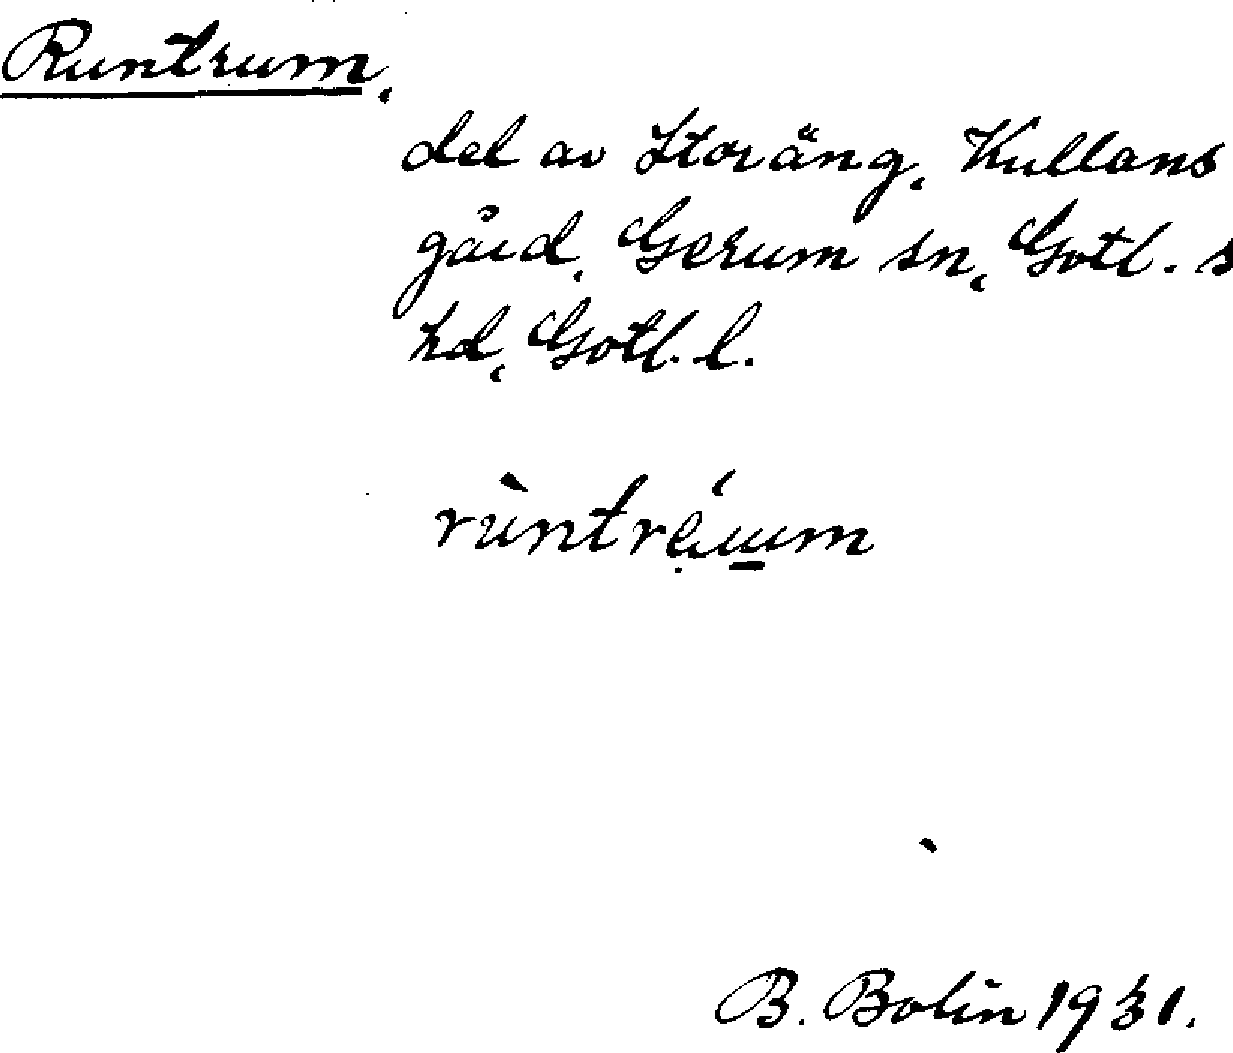 Runtrum,
del av Storäng, Kullans
gård, Gerum sn, Gotl. s
hd, Gotl. l.
B. Bolin 1931.